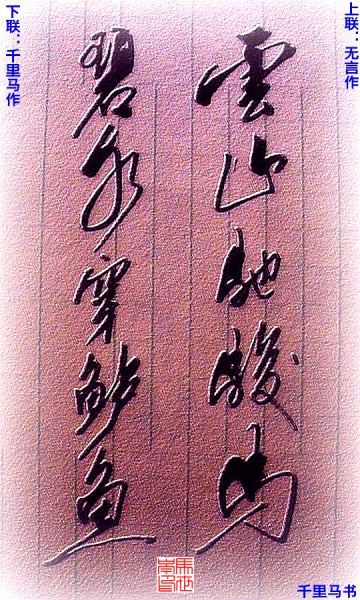 上联：无言作
雲山馳駿馬
碧水穿鲈鱼
下联：千里马作
千里马书